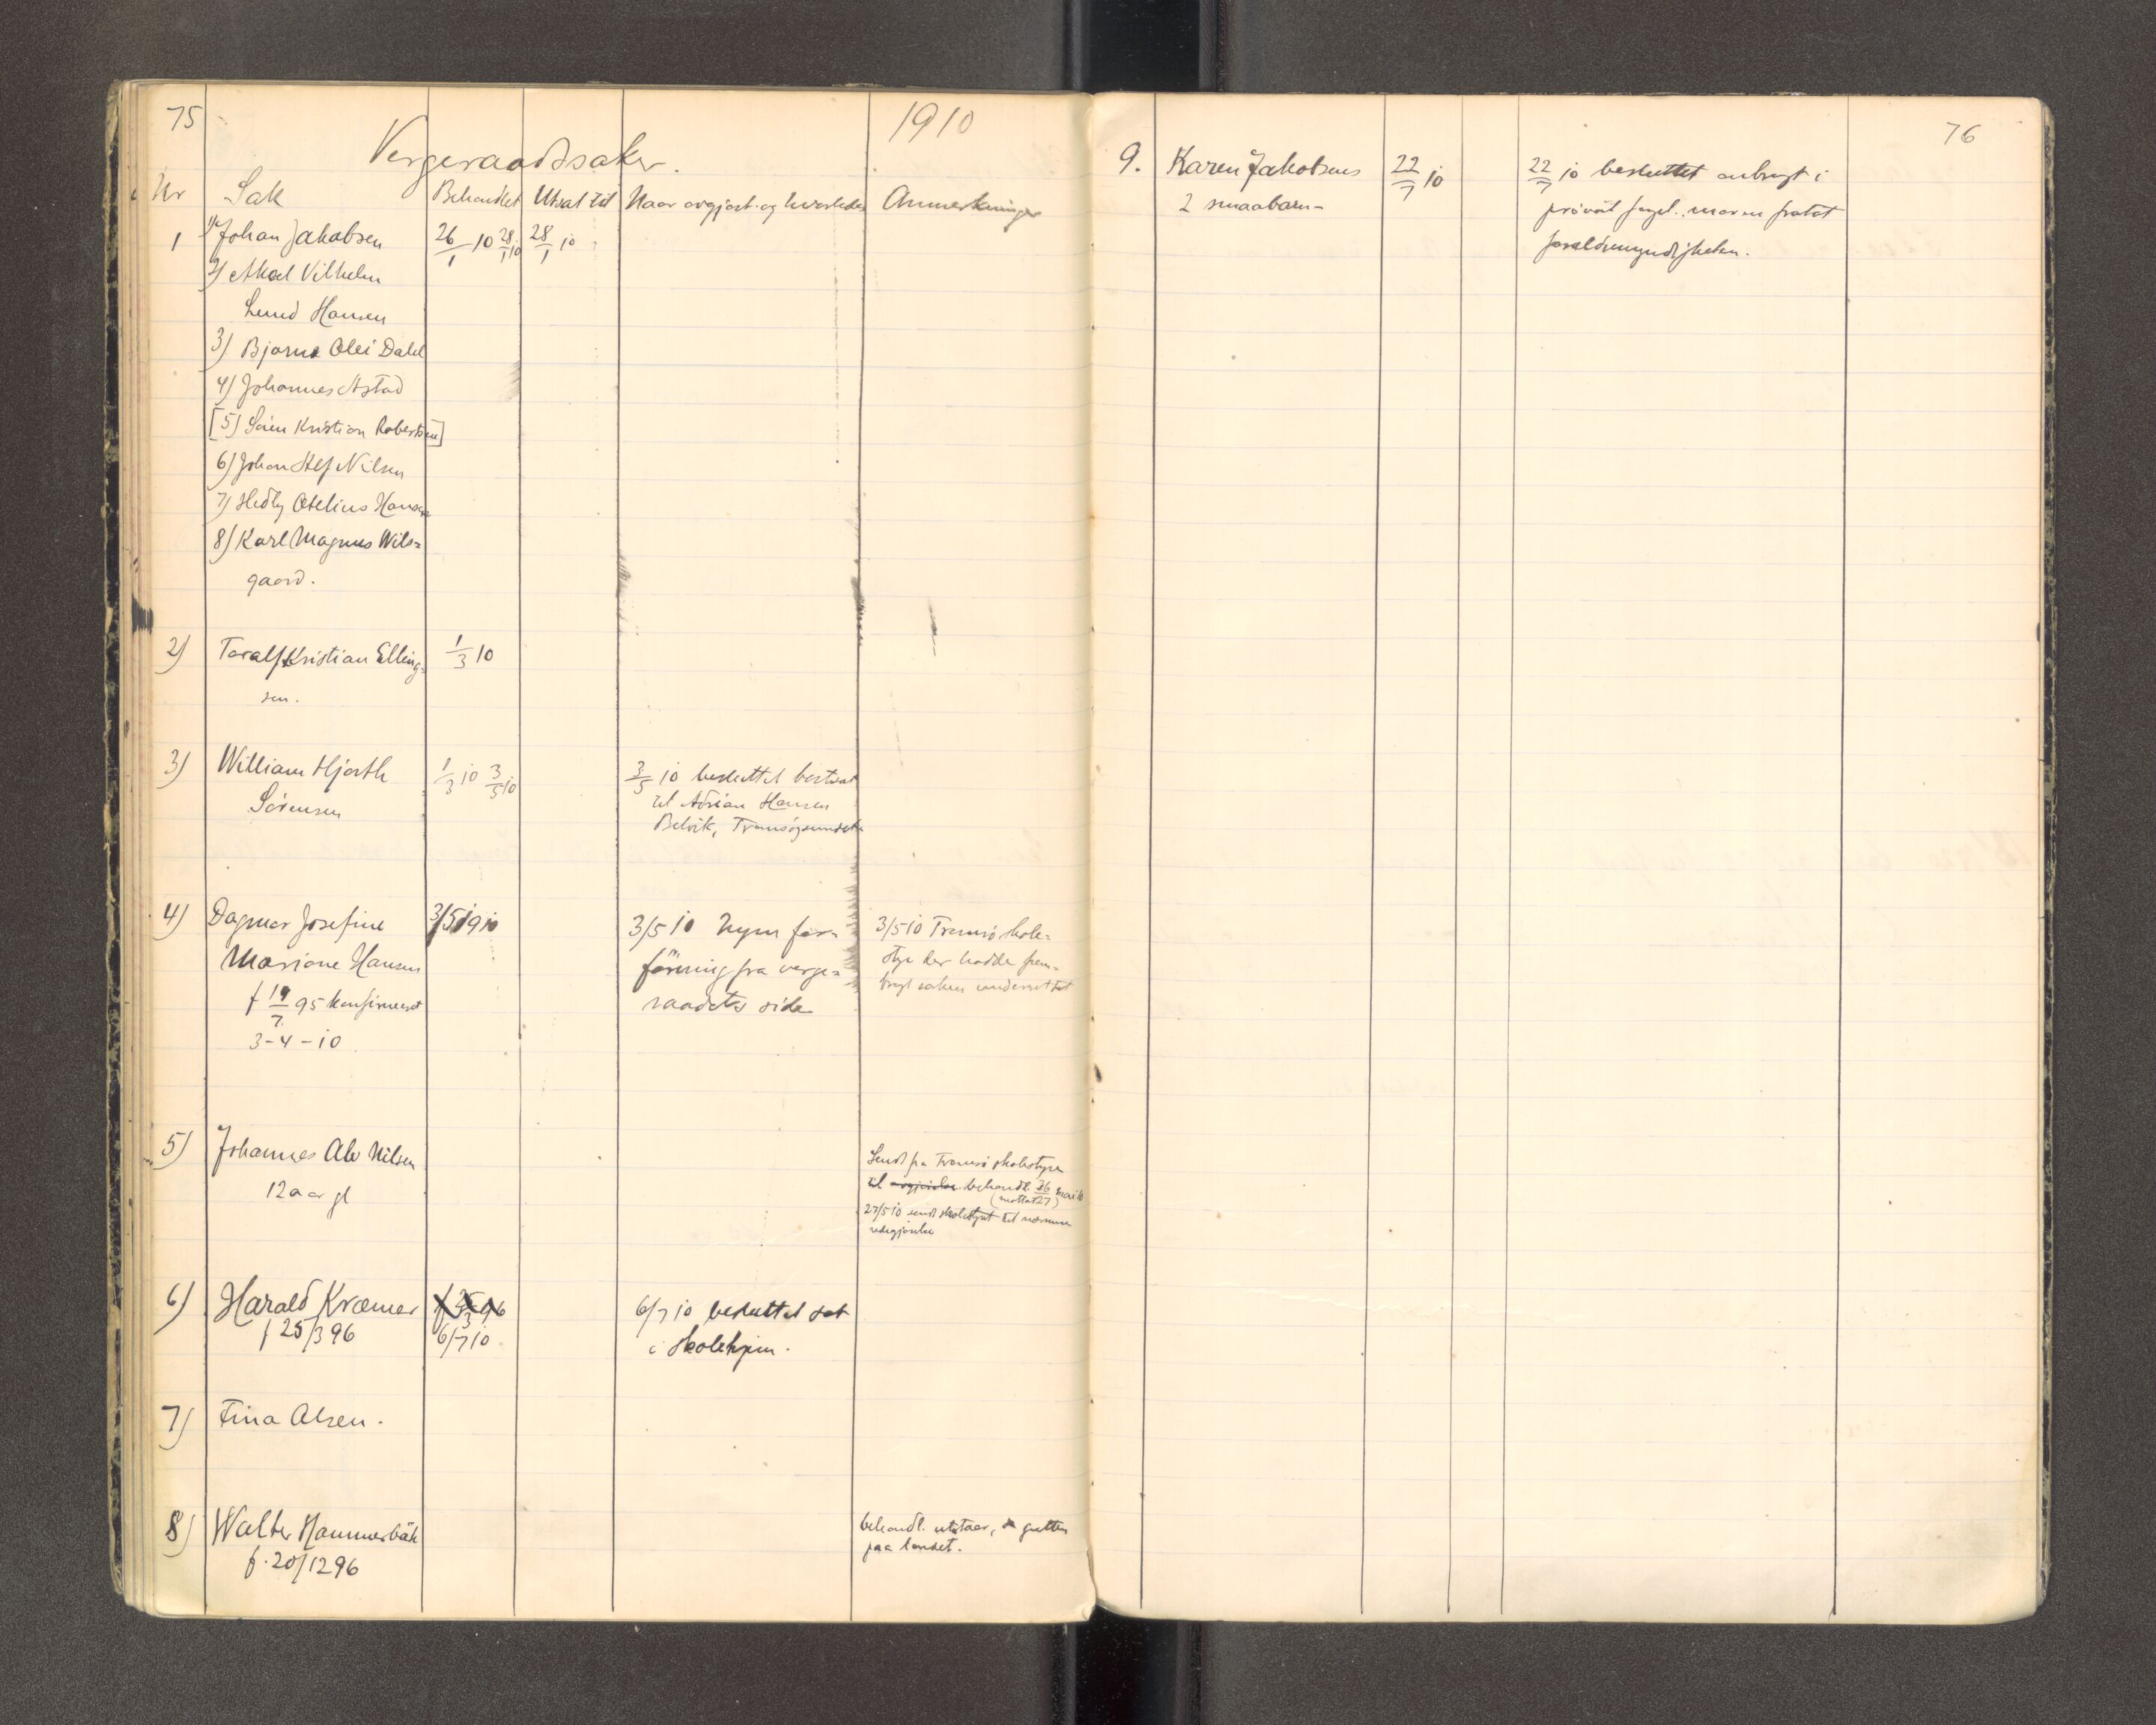 75
1910
Vergeraadssaker.
Nr Sak Behandlet Utsat til Naar avgjort og hvorledes Anmerkninger
1 1) Johan Jakobsen 26/1 10 28/1 10 28/1 10
2) Aksel Vilhelm
Lund Hansen
3) Bjarne Olei Dahl
4) Johannes Astad
[5) Sören Kristian Robertsen]
6) Johan Alf Nilsen
7) Hedly Otelius Hansen
8) Karl Magnus Wils=
gaard.
2) Toralf Kristian Elling= 1/3 10
sen.
3) William Hjorth 1/3 10 3/5 10 3/5 10 besluttet bortsat
Sörensen til Adrian Hansen
Belvik, Tromsöysundet
4) Dagmar Josefine 3/5 1910 3/5 10 Ingen for= 3/5 10 Tromsö skole=
Mariane Hansen föining fra verge= styr der hadde frem=
f 19/7 95 konfirmeret raadets side bragt saken underrettet
3-4-10
5) Johannes Alv Nilsen Sendt fra Tromsö skolestyre
12 aar gl til avgjörelse behandl. 26 mai 10
(mottat 27)
27/5 10 sendt skolestyret til nærmere
redegjörelse
6) Harald Kræmer f 25/3 96 6/7 10 besluttet sat
f 25/3 96 6/7 10 i skolehjem.
7) Fina Olsen.
8) Walter Hammerbäk behandl. utstaar, gutten
f. 20/12 96 paa landet.
76
9. Karen Jakobsens 22/7 10 22/7 10 besluttet anbragt i
2 smaabarn - privat forpl. moren fratat
forældremyndigheten.